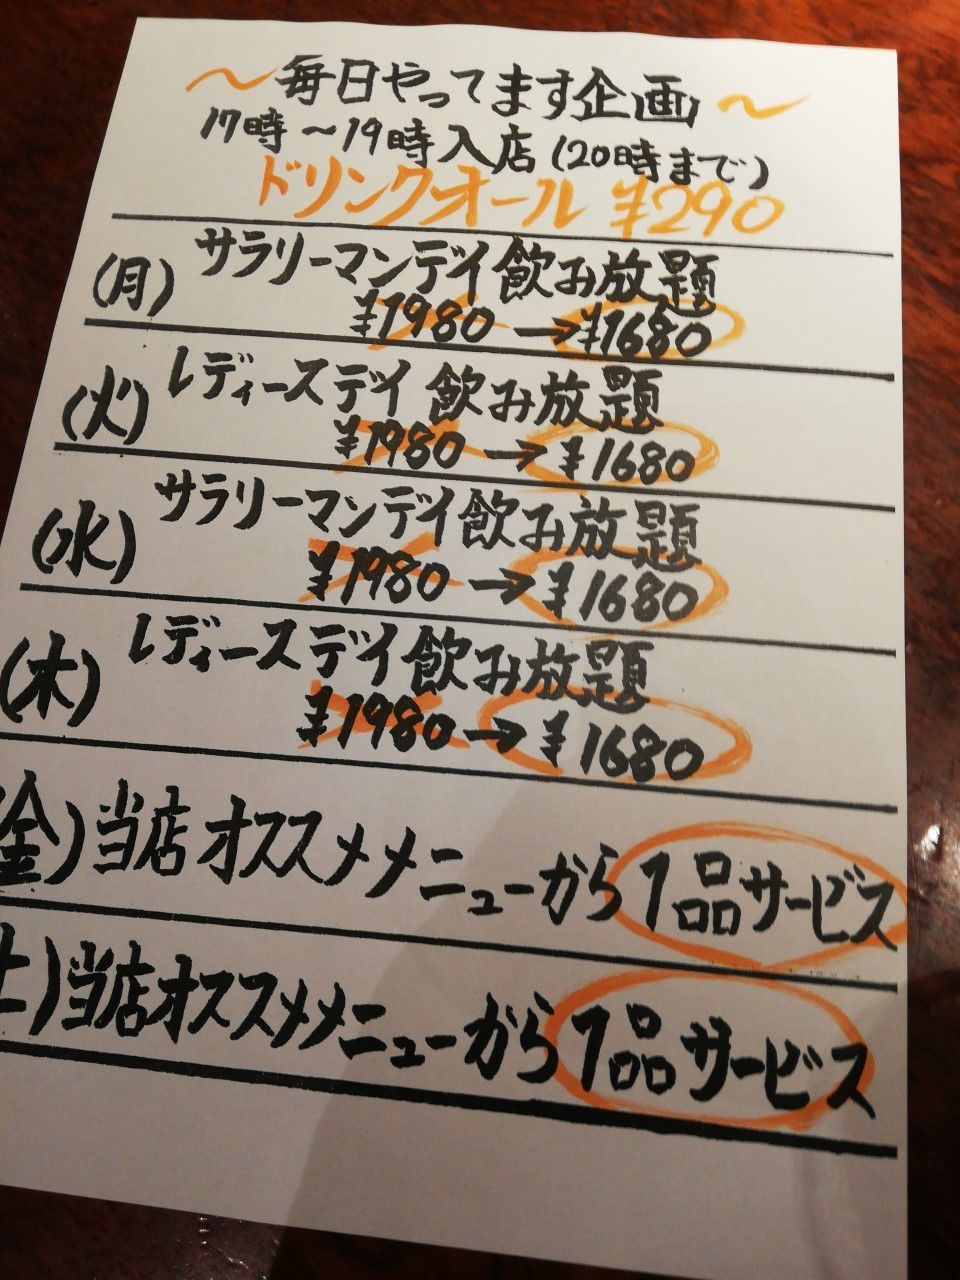 〜毎日やってます企画〜
17時〜19時入店(20時まで)
ドリンクオール ¥290
(月) サラリーマンデイ飲み放題
¥1980→¥1680
(火) レディースデイ 飲み放題
¥1980→¥1680
(水) サラリーマンデイ飲み放題
¥1980→¥1680
(木) レディースデイ飲み放題
¥1980→¥1680
(金)当店オススメメニューから1品サービス
土)当店オススメメニューから1品サービス